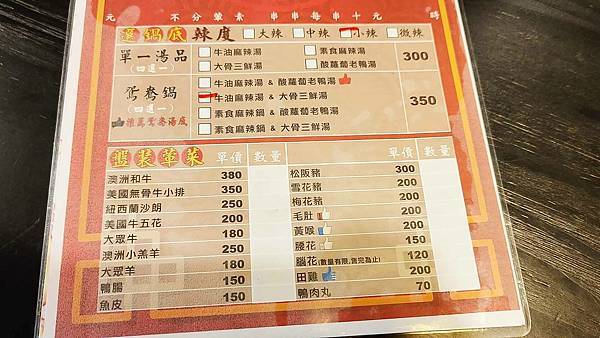 元 不分葷素 串串每串十元 時
鍋底辣度 大辣 中辣 小辣 微辣
單一湯品 (四選一) 牛油麻辣湯 素食麻辣湯 300
大骨三鮮湯 酸蘿蔔老鴨湯
鴛鴦鍋 (四選一) 推薦鴛鴦湯底 350
牛油麻辣湯 & 酸蘿蔔老鴨湯
牛油麻辣湯 & 大骨三鮮湯
素食麻辣鍋 & 酸蘿蔔老鴨湯
素食麻辣鍋 & 大骨三鮮湯
盤裝葷菜 單價 數量 單價 數量
澳洲和牛 380
美國無骨牛小排 350
紐西蘭沙朗 250
美國牛五花 200
大眾牛 180
澳洲小羔羊 250
大眾羊 180
鴨腸 150
魚皮 150
松阪豬 300
雪花豬 200
梅花豬 200
毛肚 200
黃喉 200
腰花 150
腦花(數量有限,售完為止) 120
田雞 200
鴨肉丸 70